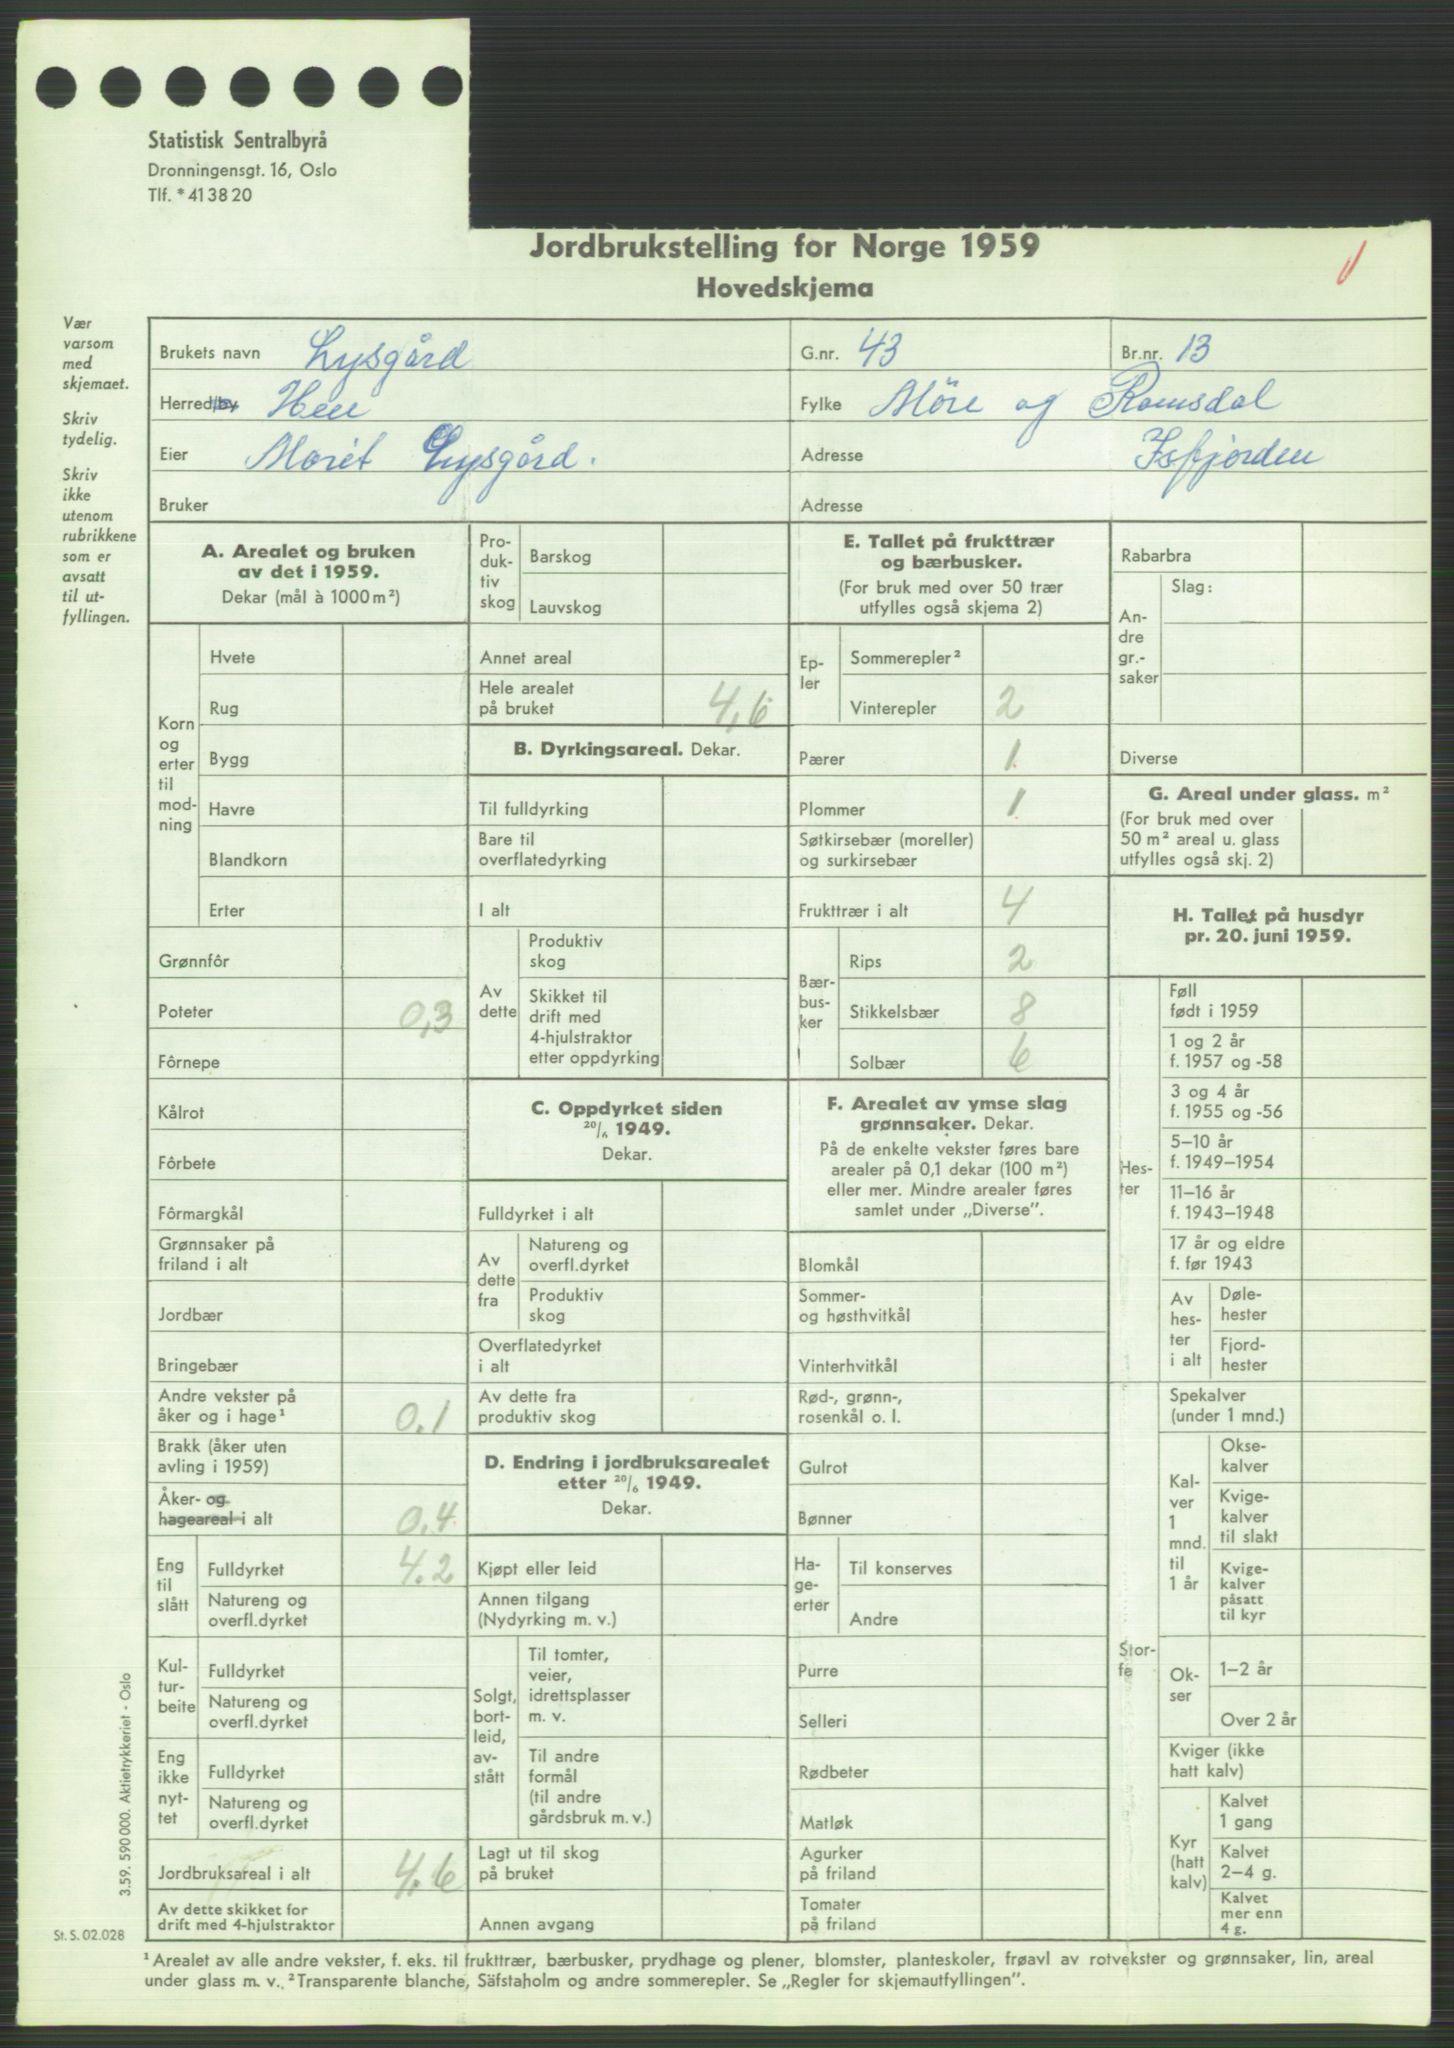 Statistisk Sentralbyrå
Dronningensgt. 16, Oslo
Tlf. * 41 38 20
Jordbrukstelling for Norge 1959
Hovedskjema
Vær
varsom
med
skjemaet.
Skriv
tydelig.
Skriv
ikke
utenom
rubrikkene
som er
avsatt
til ut-
fyllingen.
Brukets navn Lysgård G.nr. 43 Br.nr. 13
Herred/by Hen Fylke Möre og Romsdal
Eier Marit Lysgård. Adresse Isfjorden
Bruker Adresse
A. Arealet og bruken
av det i 1959.
Dekar (mål à 1000 m²)
Korn
og
erter
til
mod-
ning
Hvete
Rug
Bygg
Havre
Blandkorn
Erter
Grønnfôr
Poteter 0,3
Fôrnepe
Kålrot
Fôrbete
Fôrmargkål
Grønnsaker på
friland i alt
Jordbær
Bringebær
Andre vekster på
åker og i hage¹ 0.1
Brakk (åker uten
avling i 1959)
Åker- og
hageareal i alt 0,4
Eng
til
slått
Fulldyrket 4.2
Natureng og
overfl.dyrket
Kul-
tur-
beite
Fulldyrket
Natureng og
overfl.dyrket
Eng
ikke
nyt-
tet
Fulldyrket
Natureng og
overfl.dyrket
Jordbruksareal i alt 4.6
Av dette skikket for
drift med 4-hjulstraktor
Pro-
duk-
tiv
skog
Barskog
Lauvskog
Annet areal
Hele arealet
på bruket 4,6
B. Dyrkingsareal. Dekar.
Til fulldyrking
Bare til
overflatedyrking
I alt
Av
dette
Produktiv
skog
Skikket til
drift med
4-hjulstraktor
etter oppdyrking
C. Oppdyrket siden
20/6 1949.
Dekar.
Fulldyrket i alt
Av
dette
fra
Natureng og
overfl.dyrket
Produktiv
skog
Overflatedyrket
i alt
Av dette fra
produktiv skog
D. Endring i jordbruksarealet
etter 20/6 1949.
Dekar.
Kjøpt eller leid
Annen tilgang
(Nydyrking m. v.)
Solgt,
bort-
leid,
av-
stått
Til tomter,
veier,
idrettsplasser
m. v.
Til andre
formål
(til andre
gårdsbruk m. v.)
Lagt ut til skog
på bruket
Annen avgang
E. Tallet på frukttrær
og bærbusker.
(For bruk med over 50 trær
utfylles også skjema 2)
Ep-
ler
Sommerepler²
Vinterepler 2
Pærer 1
Plommer 1
Søtkirsebær (moreller)
og surkirsebær
Frukttrær i alt 4
Bær-
bus-
ker
Rips 2
Stikkelsbær 8
Solbær 6
F. Arealet av ymse slag
grønnsaker. Dekar.
På de enkelte vekster føres bare
arealer på 0,1 dekar (100 m²)
eller mer. Mindre arealer føres
samlet under „Diverse".
Blomkål
Sommer-
og høsthvitkål
Vinterhvitkål
Rød-, grønn-,
rosenkål o. l.
Gulrot
Bønner
Ha-
ge-
erter
Til konserves
Andre
Purre
Selleri
Rødbeter
Matløk
Agurker
på friland
Tomater
på friland
Rabarbra
An-
dre
gr.-
saker
Slag:
Diverse
G. Areal under glass. m²
(For bruk med over
50 m² areal u. glass
utfylles også skj. 2)
H. Tallet på husdyr
pr. 20. juni 1959.
Hes-
ter
Føll
født i 1959
1 og 2 år
f. 1957 og -58
3 og 4 år
f. 1955 og -56
5–10 år
f. 1949–1954
11–16 år
f. 1943–1948
17 år og eldre
f. før 1943
Av
hes-
ter
i alt
Døle-
hester
Fjord-
hester
Stor-
fe
Spekalver
(under 1 mnd.)
Kal-
ver
1
mnd.
til
1 år
Okse-
kalver
Kvige-
kalver
til slakt
Kvige-
kalver
påsatt
til kyr
Ok-
ser
1–2 år
Over 2 år
Kviger (ikke
hatt kalv)
Kyr
(hatt
kalv)
Kalvet
1 gang
Kalvet
2–4 g.
Kalvet
mer enn
4 g.
3.59. 590 000. Aktietrykkeriet - Oslo
St. S. 02.028
¹ Arealet av alle andre vekster, f. eks. til frukttrær, bærbusker, prydhage og plener, blomster, planteskoler, frøavl av rotvekster og grønnsaker, lin, areal
under glass m. v. ² Transparente blanche, Säfstaholm og andre sommerepler. Se „Regler for skjemautfyllingen".